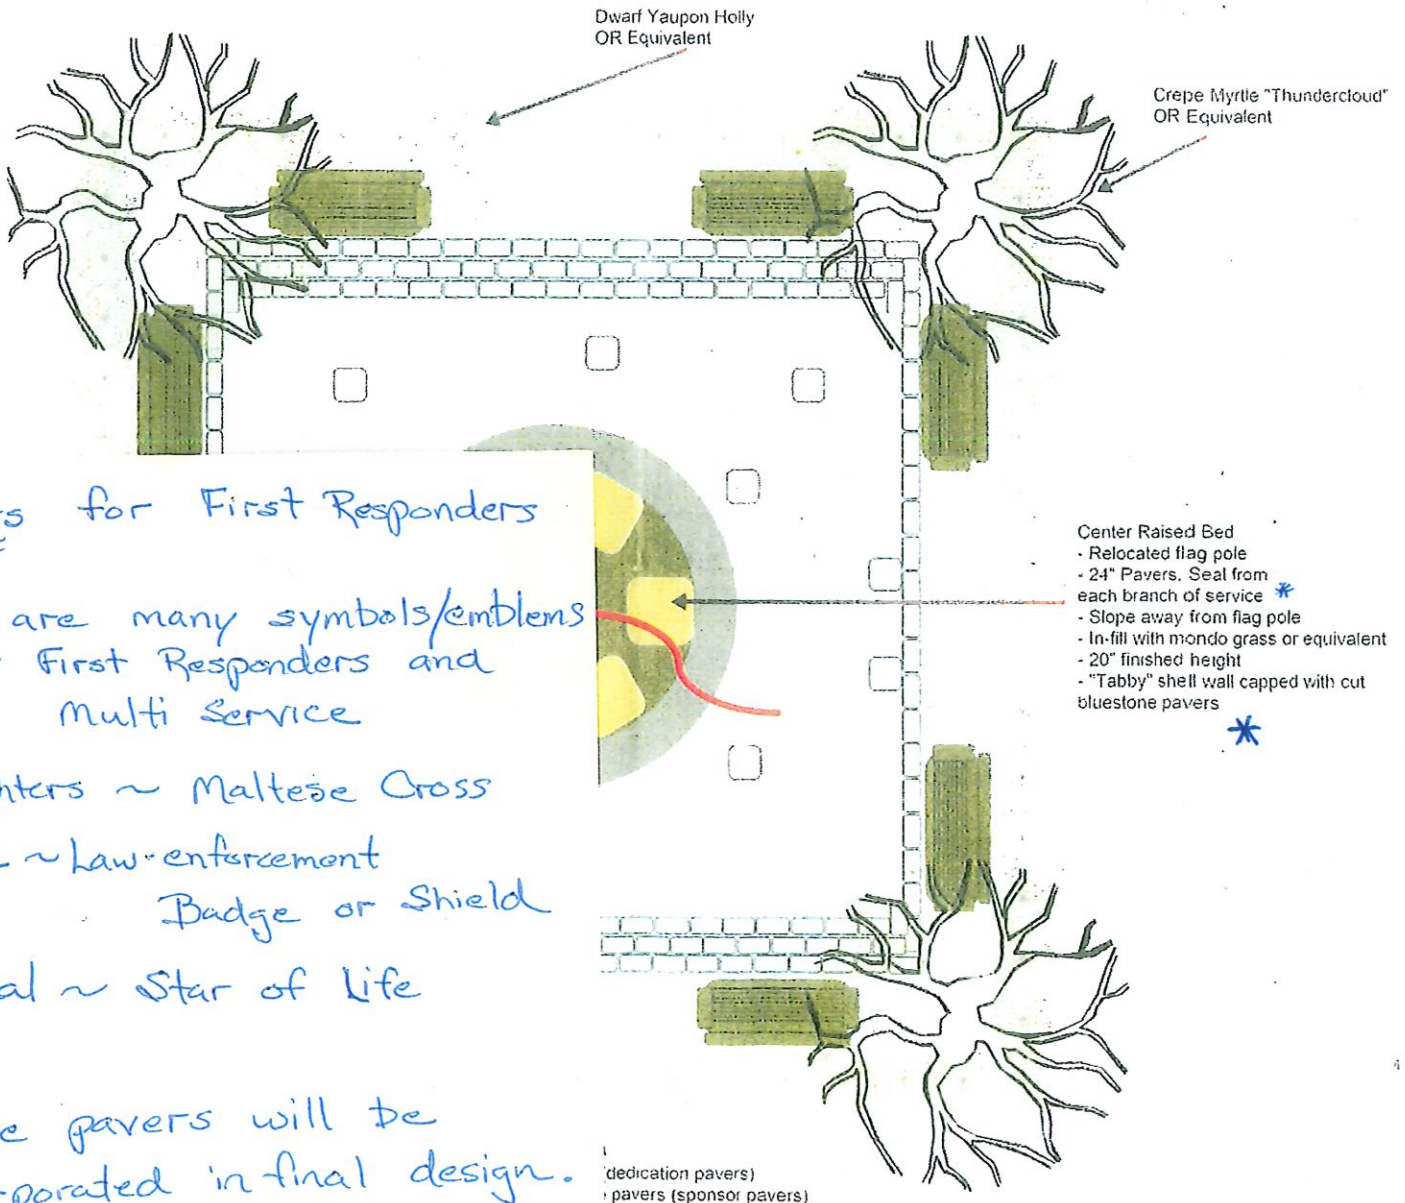 Dwarf Yaupon Holly
OR Equivalent
Crepe Myrtle "Thundercloud"
OR Equivalent
Center Raised Bed
- Relocated flag pole
- 24" Pavers, Seal from
each branch of service *
- Slope away from flag pole
- In-fill with mondo grass or equivalent
- 20" finished height
- "Tabby" shell wall capped with cut
bluestone pavers
*
for First Responders
are many symbols/emblems
First Responders and
Multi Service
~ Maltese Cross
~ Law-enforcement
Badge or Shield
~ Star of Life
pavers will be
in final design.
(dedication pavers)
pavers (sponsor pavers)